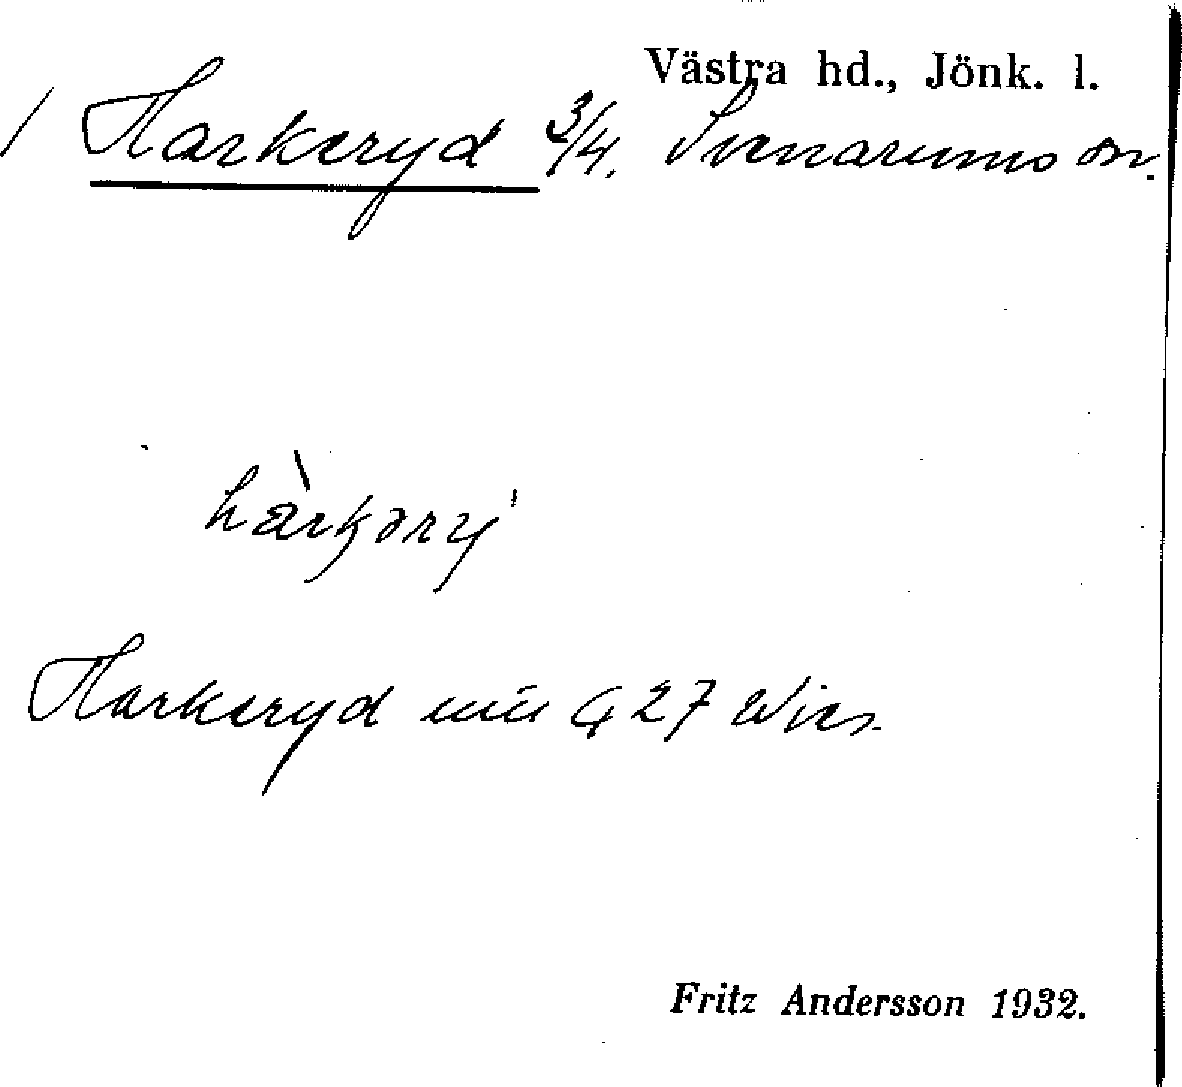 Västra hd., Jönk. l.
/ Harkeryd 3/4. Svenarums sn.
hàrkəry'
Harkeryd
Fritz Andersson 1932.